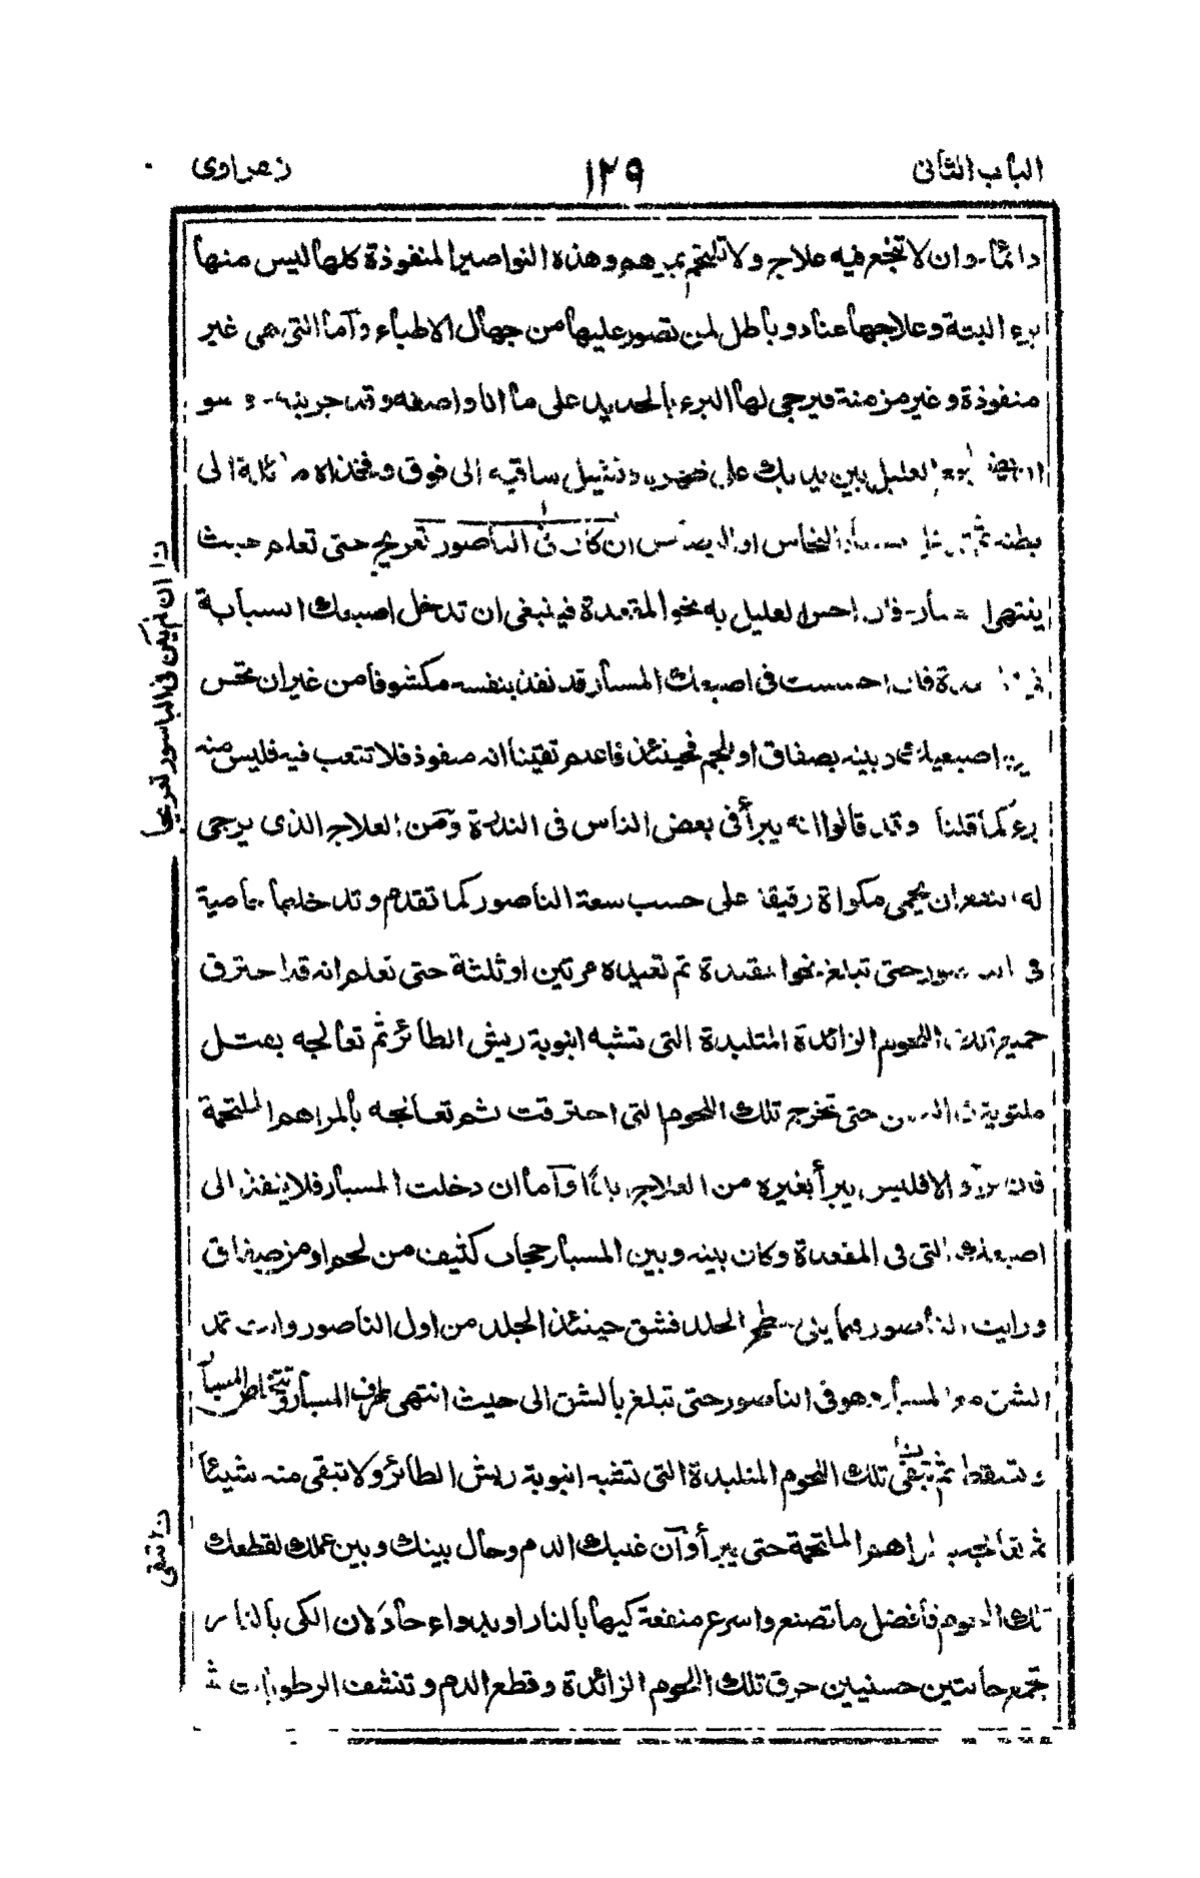 الباب الثانى
١٢٩
زهراوى
دائما وان لا تنجع فيه علاج ولا تلتحم بمرهم وهذه النواصير المنفوذة كلها ليس منها
برء البتة وعلاجها عناد وباطل لمن تصور عليها من جهال الاطباء وآما التى هى غير
منفوذة وغير مزمنة فيرجى لها البرء بالحديد على ما انا واصفه وقد جربته وهو
العليل بين يديك على ظهره وتشيل ساقيه الى فوق وفخذاه مائلة الى
بطنه ثم النحاس او الرصاص ان كان فى الناصور تعريج حتى تعلم حيث
ينتهى فان احس العليل به نحو المقعدة فينبغى ان تدخل اصبعك السبابة
فان احسست فى اصبعك المسبار قد نفذ بنفسه مكشوفا من غير ان تحس
بين اصبعيك بينه بصفاق او لحم فحينئذ فاعلم تقينا انه منفوذ فلا تتعب فيه فليس منه
برء كما قلنا وقد قالوا انه يبرأ فى بعض الناس فى الندرة ومن العلاج الذى يرجى
له ان يحمى مكواة رقيقة على حسب سعة الناصور كما تقدم وتدخلها حامية
فى حتى تبلغ نحو المقعدة ثم تعيده مرتين او ثلثة حتى تعلم انه قد احترق
جميع تلك اللحوم الزائدة المتلبدة التى تشبه انبوبة ريش الطائر ثم تعالجه بفتل
ملتوية حتى تخرج تلك اللحوم التى احترقت ثم تعالجه بالمراهم الملتحمة
فان والا فليس يبرأ بغيره من العلاج وآما ان دخلت المسبار فلا ينفذ الى
اصبعك التى فى المقعدة وكان بينه وبين المسبار حجاب كثيف من لحم او من صفاق
ورايت الناصور فيما يلى سطح الجلد فشق حينئذ الجلد من اول الناصور وانت تمر
الشق مع المسبار وهو فى الناصور حتى تبلغ بالشق الى حيث انتهى طرف المسبار وتتخلص المسبار
وتسقط ثم تبقى تلك اللحوم المتلبدة التى تشبه انبوبة ريش الطائر ولا تبقى منه شيئا
ثم تعالجه المراهم الملتحمة حتى يبرأ وآن غلبك الدم وحال بينك وبين عملك لقطعك
تلك اللحوم فافضل ما تصنع واسرع منفعة كيها بالنار او بدواء حاد لان الكى بالنار
تجمع حالتين حسنيين حرق تلك اللحوم الزائدة وقطع الدم وتنشف الرطوبات
ن١ ان لم يكن فى الباسور تعريجا
ن٢ تنقى